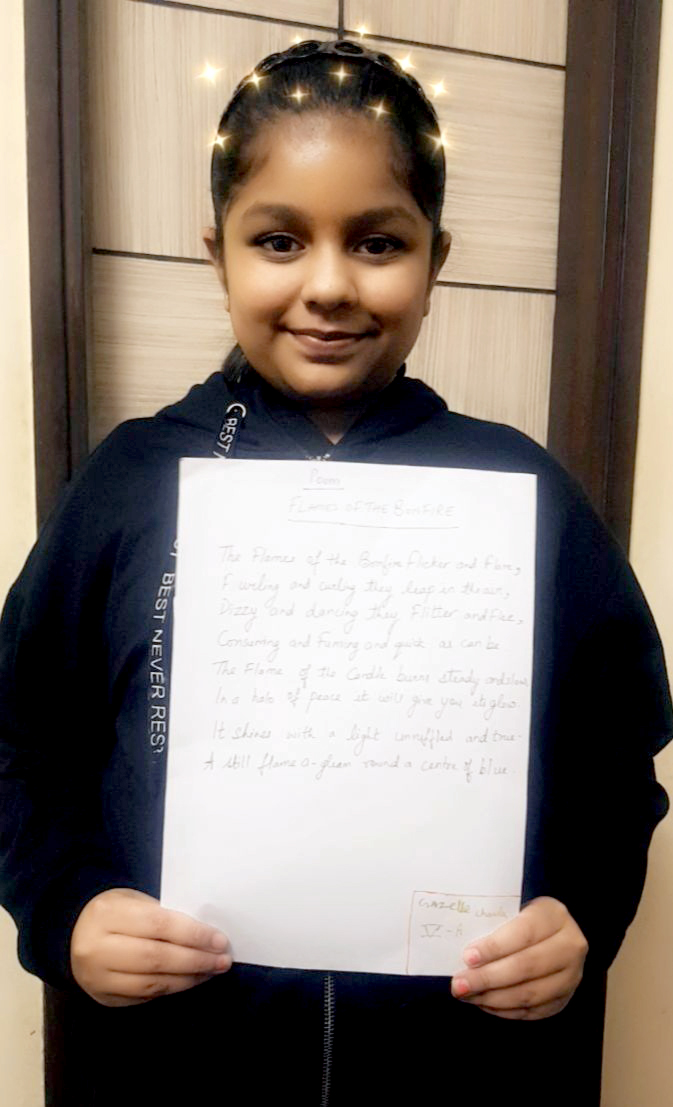 BEST
BEST NEVER RES
Poem
FLAMES OF THE BONFIRE
The Flames of the Bonfire flicker and flare,
Furling and curling they leap in the air,
Dizzy and dancing they Flitter and flee,
Consuming and Fuming and quick as can be
The Flame of the Candle burns steady and slow
In a halo of peace it will give you its glow.
It shines with a light unruffled and true.
A still flame a-gleam round a centre of blue.
Gazelle Chawla
V-A